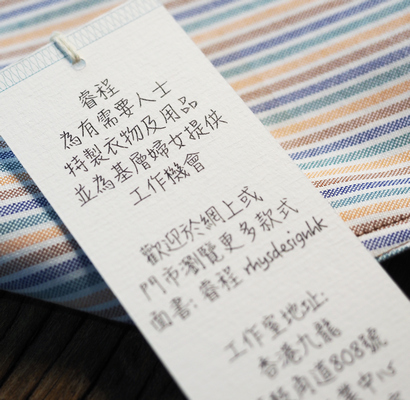 睿程
為有需要人士
特製衣物及用品
並為基層婦女提供
工作機會
歡迎於網上或
門市瀏覽更多款式
面書: 睿程 rhysdesignhk
工作室地址:
香港九龍
角道808號
業中心